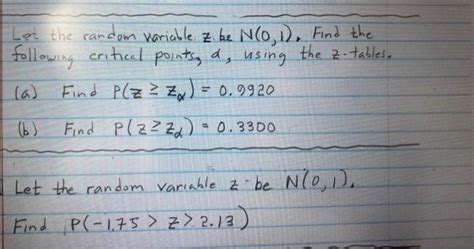 Let the random variable z be N(0,1). Find the
following critical points, α, using the z-tables.
(a) Find P(z ≥ zα) = 0.9920
(b) Find P(z ≥ zα) = 0.3300
Let the random variable z be N(0,1).
Find P(-1.75 > z > 2.13)